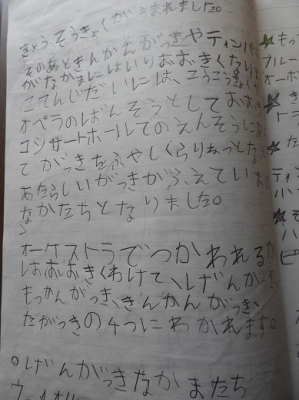 きょうそうきょくがうまれました。
そのあときんかんがっきやティンパニ
がなかまにはいりおおきくなりま
こてんじだいには、こうこうきょくや
オペラのばんそうとしておお
コンサートホールでのえんそうに
てがっきをふやしくらりねっとな
あたらしいがっきがふえていま
なかたちとなりました。
オーケストラでつかわれるが
はおおきくわけて、げんがっき、
もっかんがっき、きんかんがっき、
だがっきの4つにわかれます。
○げんがっきなかまたち
ヴ
★もっ
フルー
オーボ
★
★
ティン
ハ
ピ